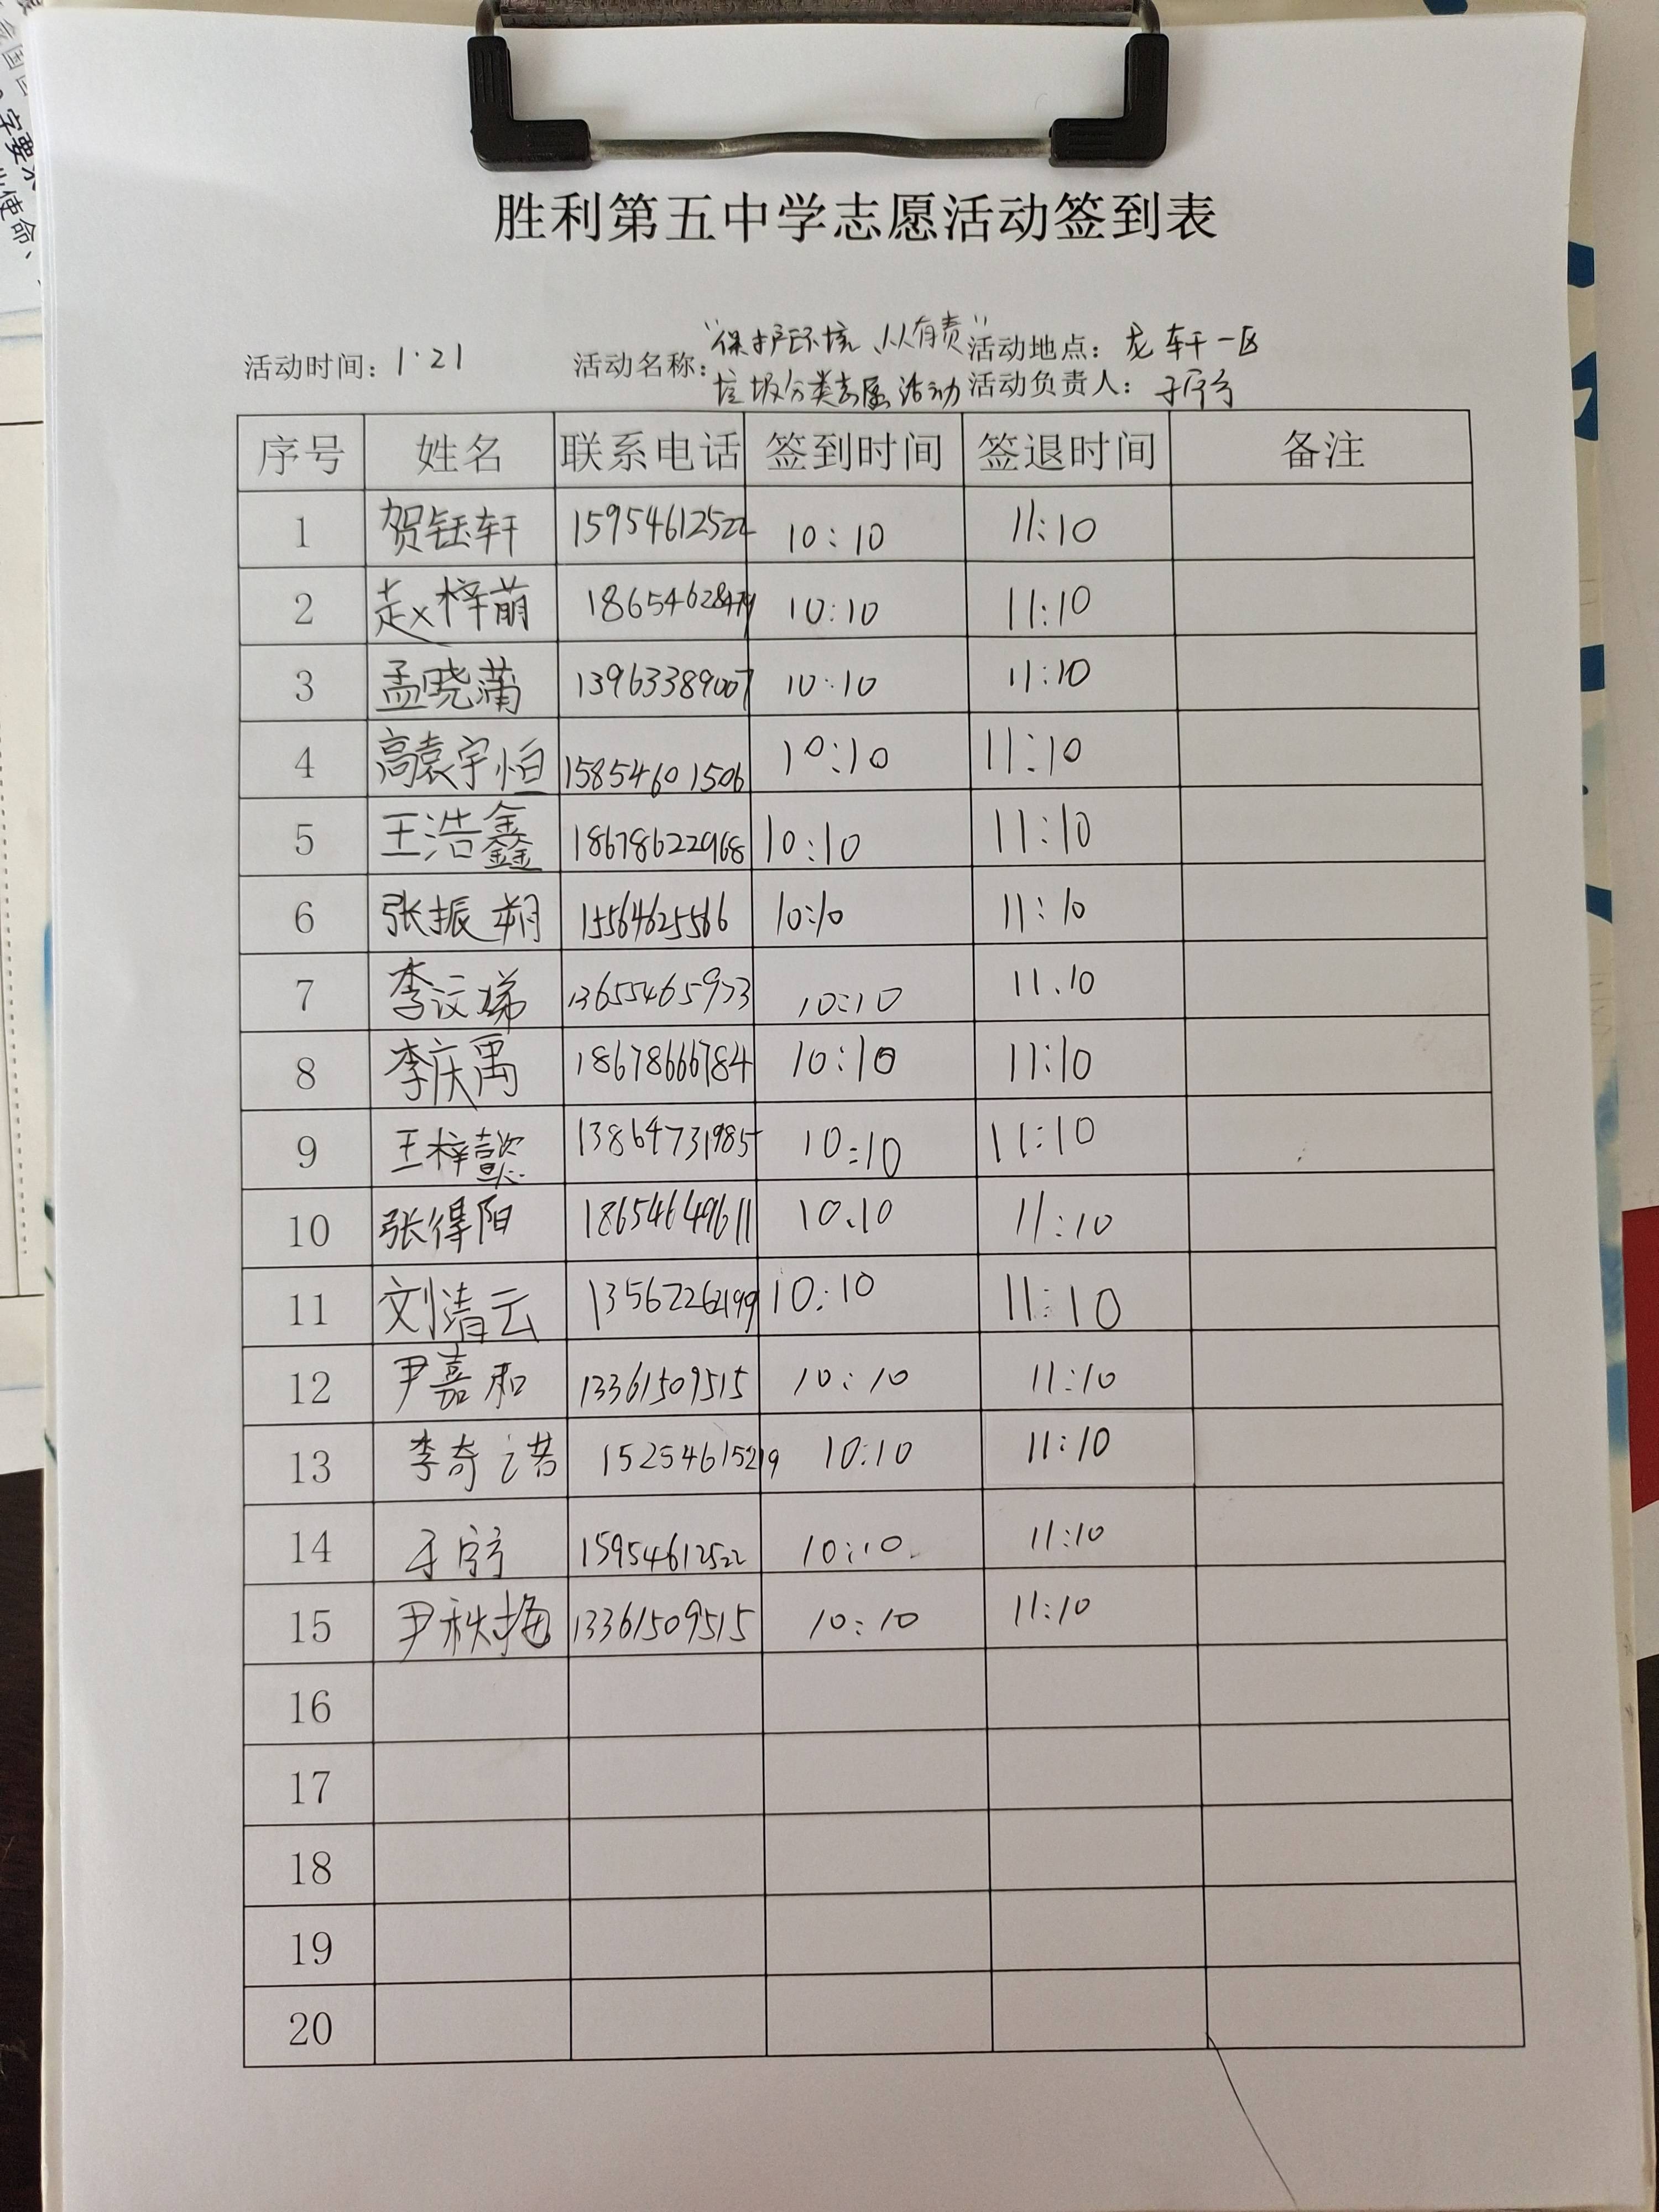 胜利第五中学志愿活动签到表
活动时间：1·21 活动名称："保护环境、人人有责" 活动地点：龙轩一区
垃圾分类专属活动 活动负责人：
序号 姓名 联系电话 签到时间 签退时间 备注
1 贺钰轩 15954612522 10:10 11:10
2 赵梓萌 18654628479 10:10 11:10
3 孟晓蒲 13963389007 10:10 11:10
4 高袁宇恒 15854601506 10:10 11:10
5 王浩鑫 18678622968 10:10 11:10
6 张振朔 15564625566 10:10 11:10
7 李汶娣 13655465933 10:10 11.10
8 李庆禹 18678666784 10:10 11:10
9 王梓懿 13864731985 10:10 11:10
10 张得阳 18654649611 10.10 11:10
11 刘清云 13562262199 10:10 11:10
12 尹嘉和 13361509515 10:10 11:10
13 李奇诺 15254615219 10:10 11:10
14 15954612522 10:10 11:10
15 尹秋梅 13361509515 10:10 11:10
16
17
18
19
20